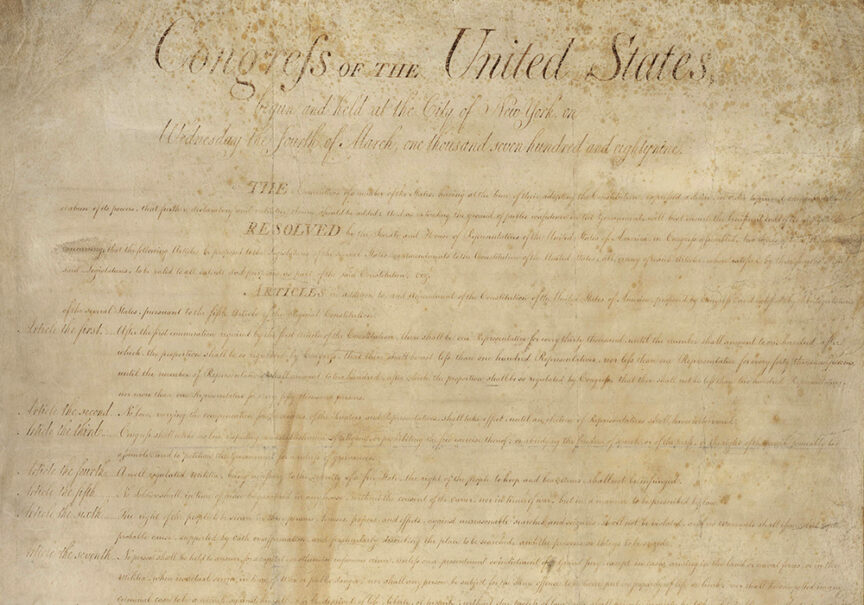 Congress OF THE United States,
begun and held at the City of New York, on
Wednesday the fourth of March, one thousand seven hundred and eighty nine.
THE Conventions of a number of the States, having at the time of their adopting the Constitution, expressed a desire, in order to prevent
of its powers, that further declaratory and restrictive clauses should be added: And as extending the ground of public confidence in the Government, will best ensure the beneficent ends of its
RESOLVED by the Senate and House of Representatives of the United States of America, in Congress assembled, two thirds of both Houses
concurring, that the following Articles be proposed to the Legislatures of the several States, as amendments to the Constitution of the United States, all, or any of which Articles, when ratified by three fourths of the
said Legislatures, to be valid to all intents and purposes, as part of the said Constitution; viz.
ARTICLES in addition to, and Amendment of the Constitution of the United States of America, proposed by Congress, and ratified by the Legislatures
of the several States, pursuant to the fifth Article of the original Constitution.
Article the first... After the first enumeration required by the first article of the Constitution, there shall be one Representative for every thirty thousand, until the number shall amount to one hundred, after
which, the proportion shall be so regulated by Congress, that there shall be not less than one hundred Representatives, nor less than one Representative for every forty thousand persons,
until the number of Representatives shall amount to two hundred, after which the proportion shall be so regulated by Congress, that there shall not be less than two hundred Representatives,
nor more than one Representative for every fifty thousand persons.
Article the second... No law, varying the compensation for the services of the Senators and Representatives, shall take effect, until an election of Representatives shall have intervened.
Article the third... Congress shall make no law respecting an establishment of religion, or prohibiting the free exercise thereof; or abridging the freedom of speech, or of the press; or the right of the people peaceably to
assemble, and to petition the Government for a redress of grievances.
Article the fourth... A well regulated Militia, being necessary to the security of a free State, the right of the people to keep and bear Arms, shall not be infringed.
Article the fifth... No Soldier shall, in time of peace be quartered in any house, without the consent of the owner, nor in time of war, but in a manner to be prescribed by law.
Article the sixth... The right of the people to be secure in their persons, houses, papers, and effects, against unreasonable searches and seizures, shall not be violated, and no warrants shall issue, but upon
probable cause, supported by oath or affirmation, and particularly describing the place to be searched, and the persons or things to be seized.
Article the seventh... No person shall be held to answer for a capital, or otherwise infamous crime, unless on a presentment or indictment of a Grand Jury, except in cases arising in the land or naval forces, or in the
Militia, when in actual service in time of War or public danger; nor shall any person be subject for the same offence to be twice put in jeopardy of life or limb; nor shall be compelled in any
criminal case to be a witness against himself, nor be deprived of life, liberty, or property, without due process of law;